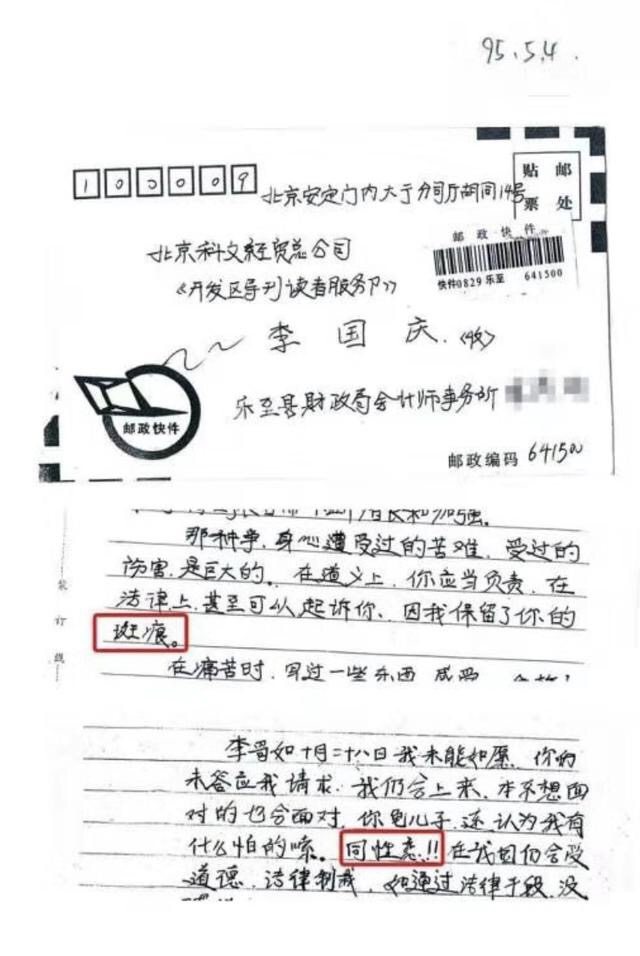 95.5.4.
100009
贴邮
票处
北京安定门内大于分司厅胡同14号
邮政快件
北京科文经贸总公司
快件0829 乐至 641500
《开发区导刊读者服务卩》
李国庆.(收)
邮政快件
乐至县财政局会计师事务所
邮政编码 641500
那种事,身心遭受过的苦难,受过的
伤害,是巨大的。在道义上,你应当负责,在
法律上,甚至可以起诉你、因我保留了你的
斑痕。
装
订
线
在痛苦时,写过一些东西
如十月二十八日我未能如愿,你的
未答应我请求,我们会上来、本不想面
对的也会面对,你龟儿子,还认为我有
什么怕的嗦。同性恋!!在我国仍会受
道德,法律制裁,如通过法律手段,没